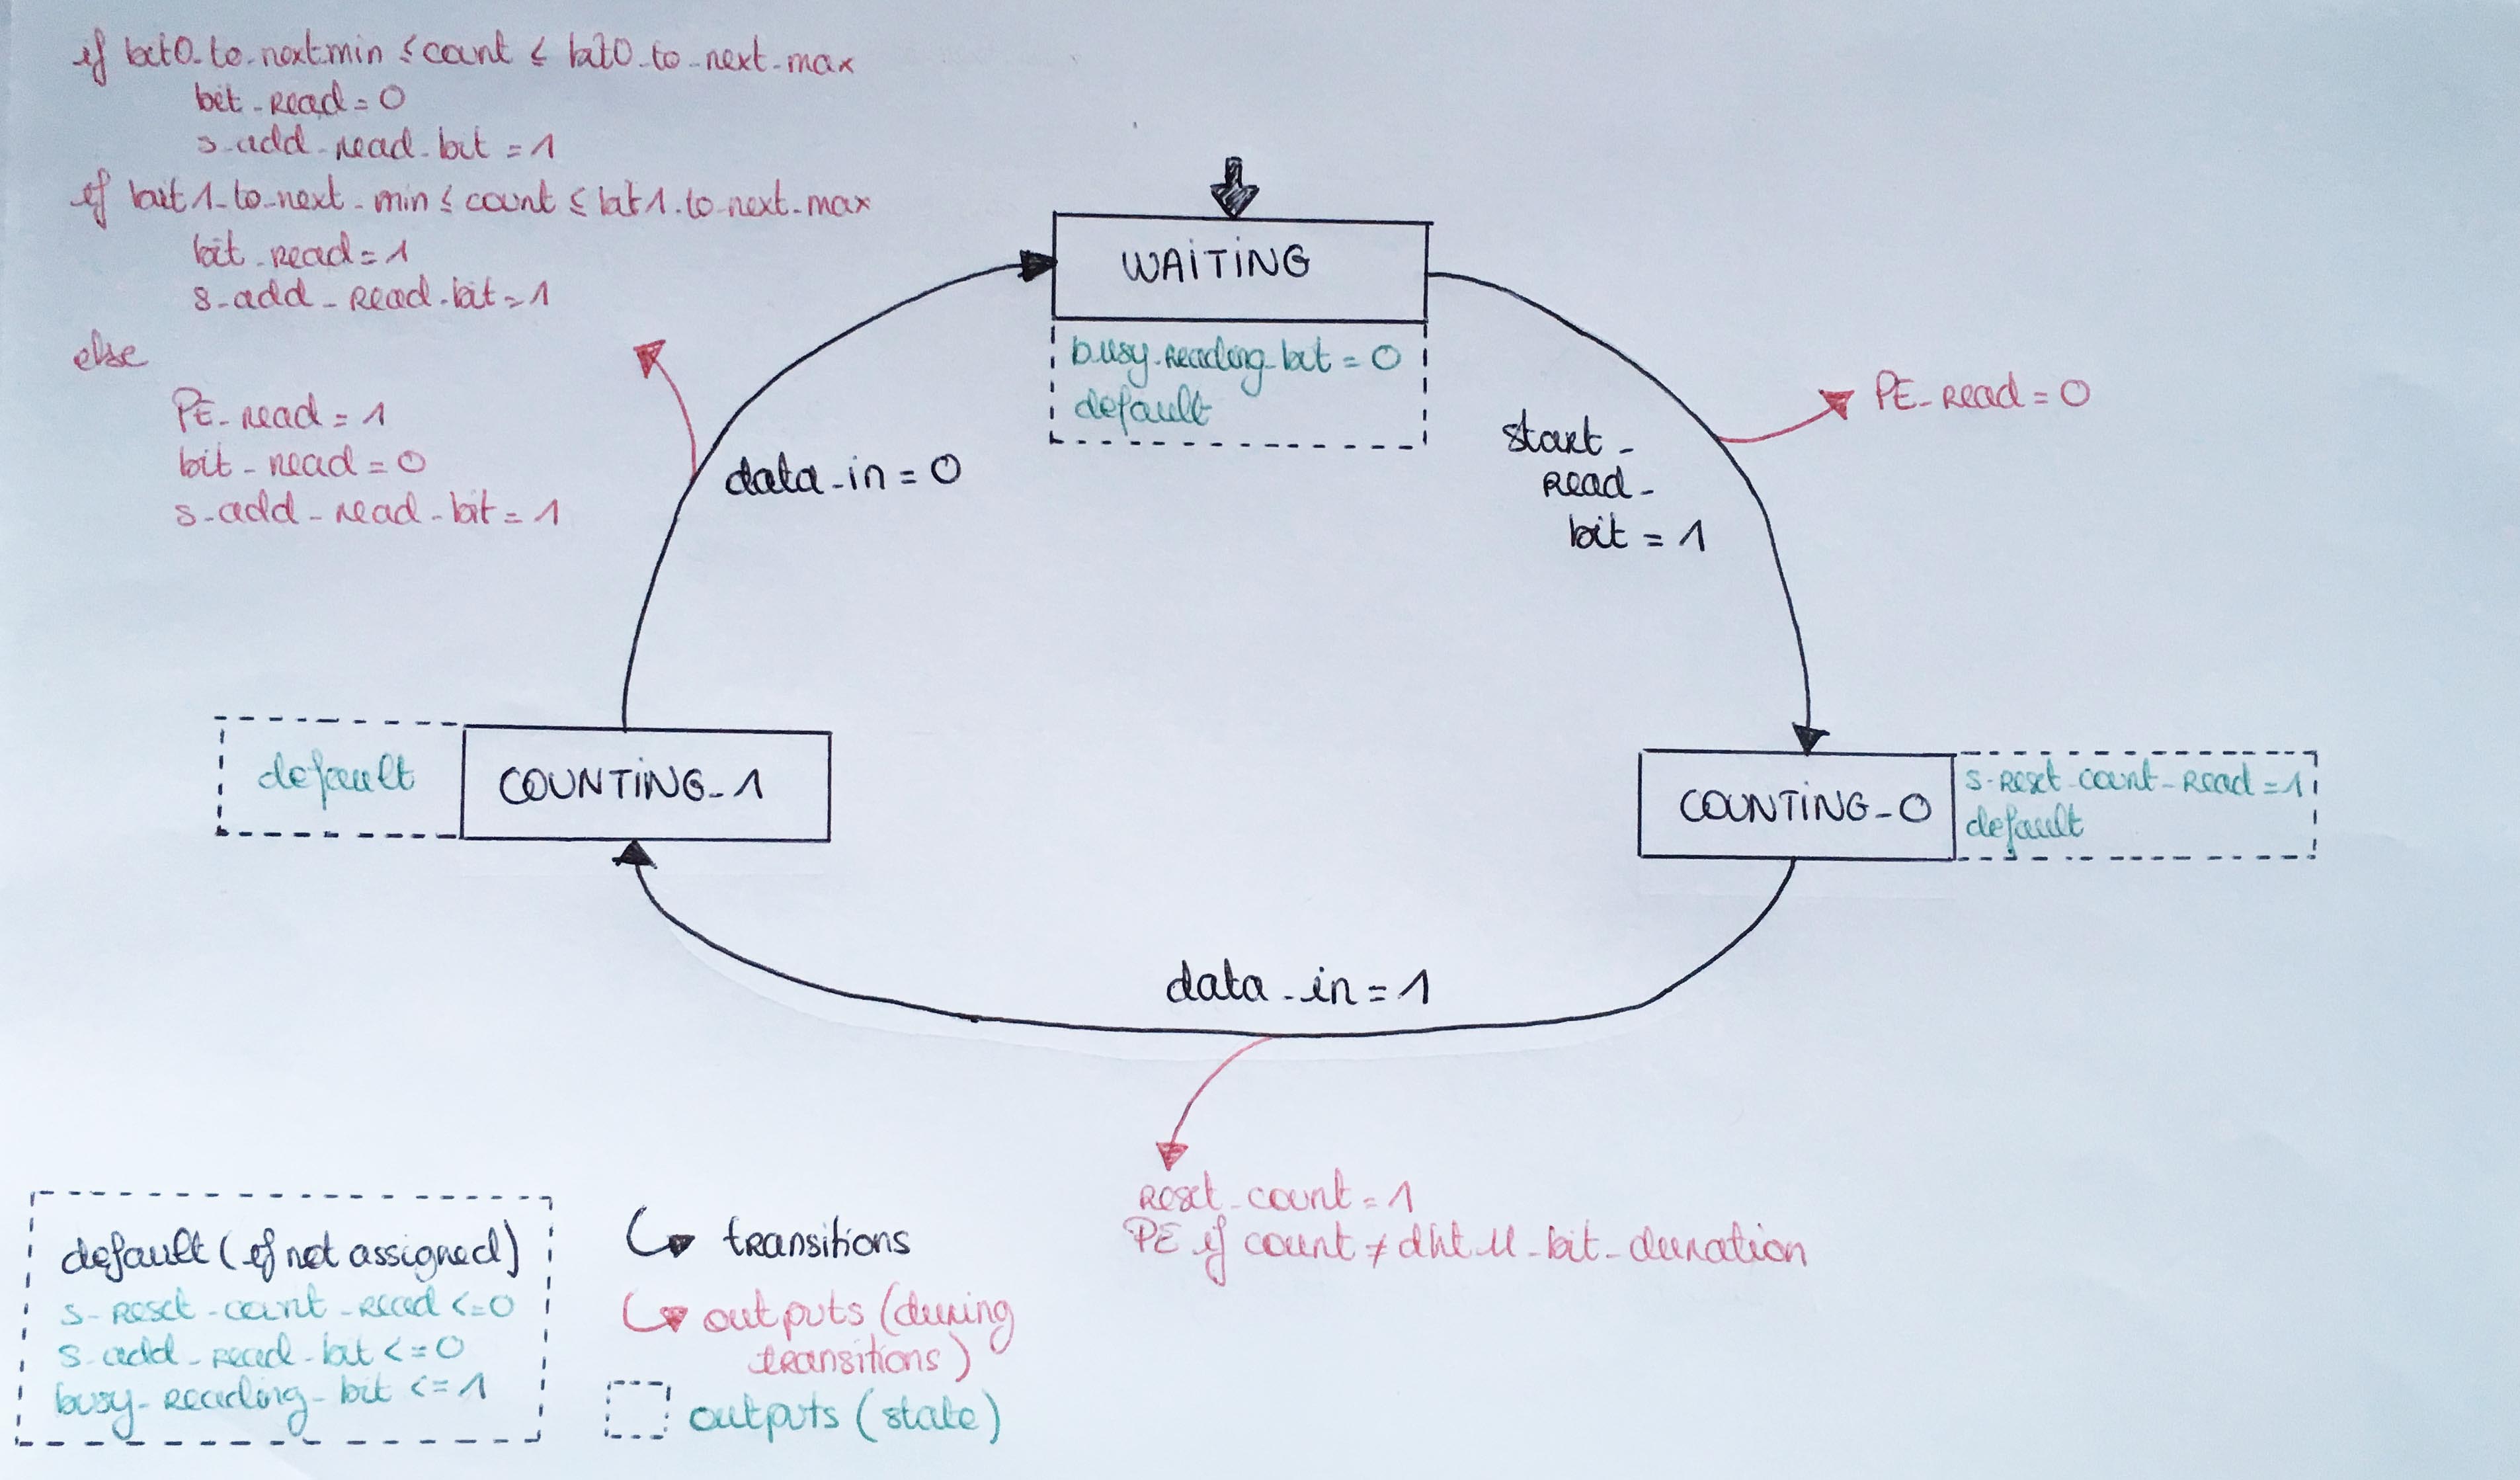 if bit0_to_next_min ≤ count ≤ bit0_to_next_max
bit_read = 0
s_add_read_bit = 1
if bit1_to_next_min ≤ count ≤ bit1_to_next_max
bit_read = 1
s_add_read_bit = 1
else
PE_read = 1
bit_read = 0
s_add_read_bit = 1
WAITING
busy_reading_bit = 0
default
data_in = 0
start_
read_
bit = 1
PE_read = 0
default
COUNTING_1
COUNTING_0
s_reset_count_read = 1
default
data_in = 1
reset_count = 1
PE if count ≠ dht11_bit_duration
default (if not assigned)
s_reset_count_read <= 0
s_add_read_bit <= 0
busy_reading_bit <= 1
transitions
outputs (during
transitions)
outputs (state)